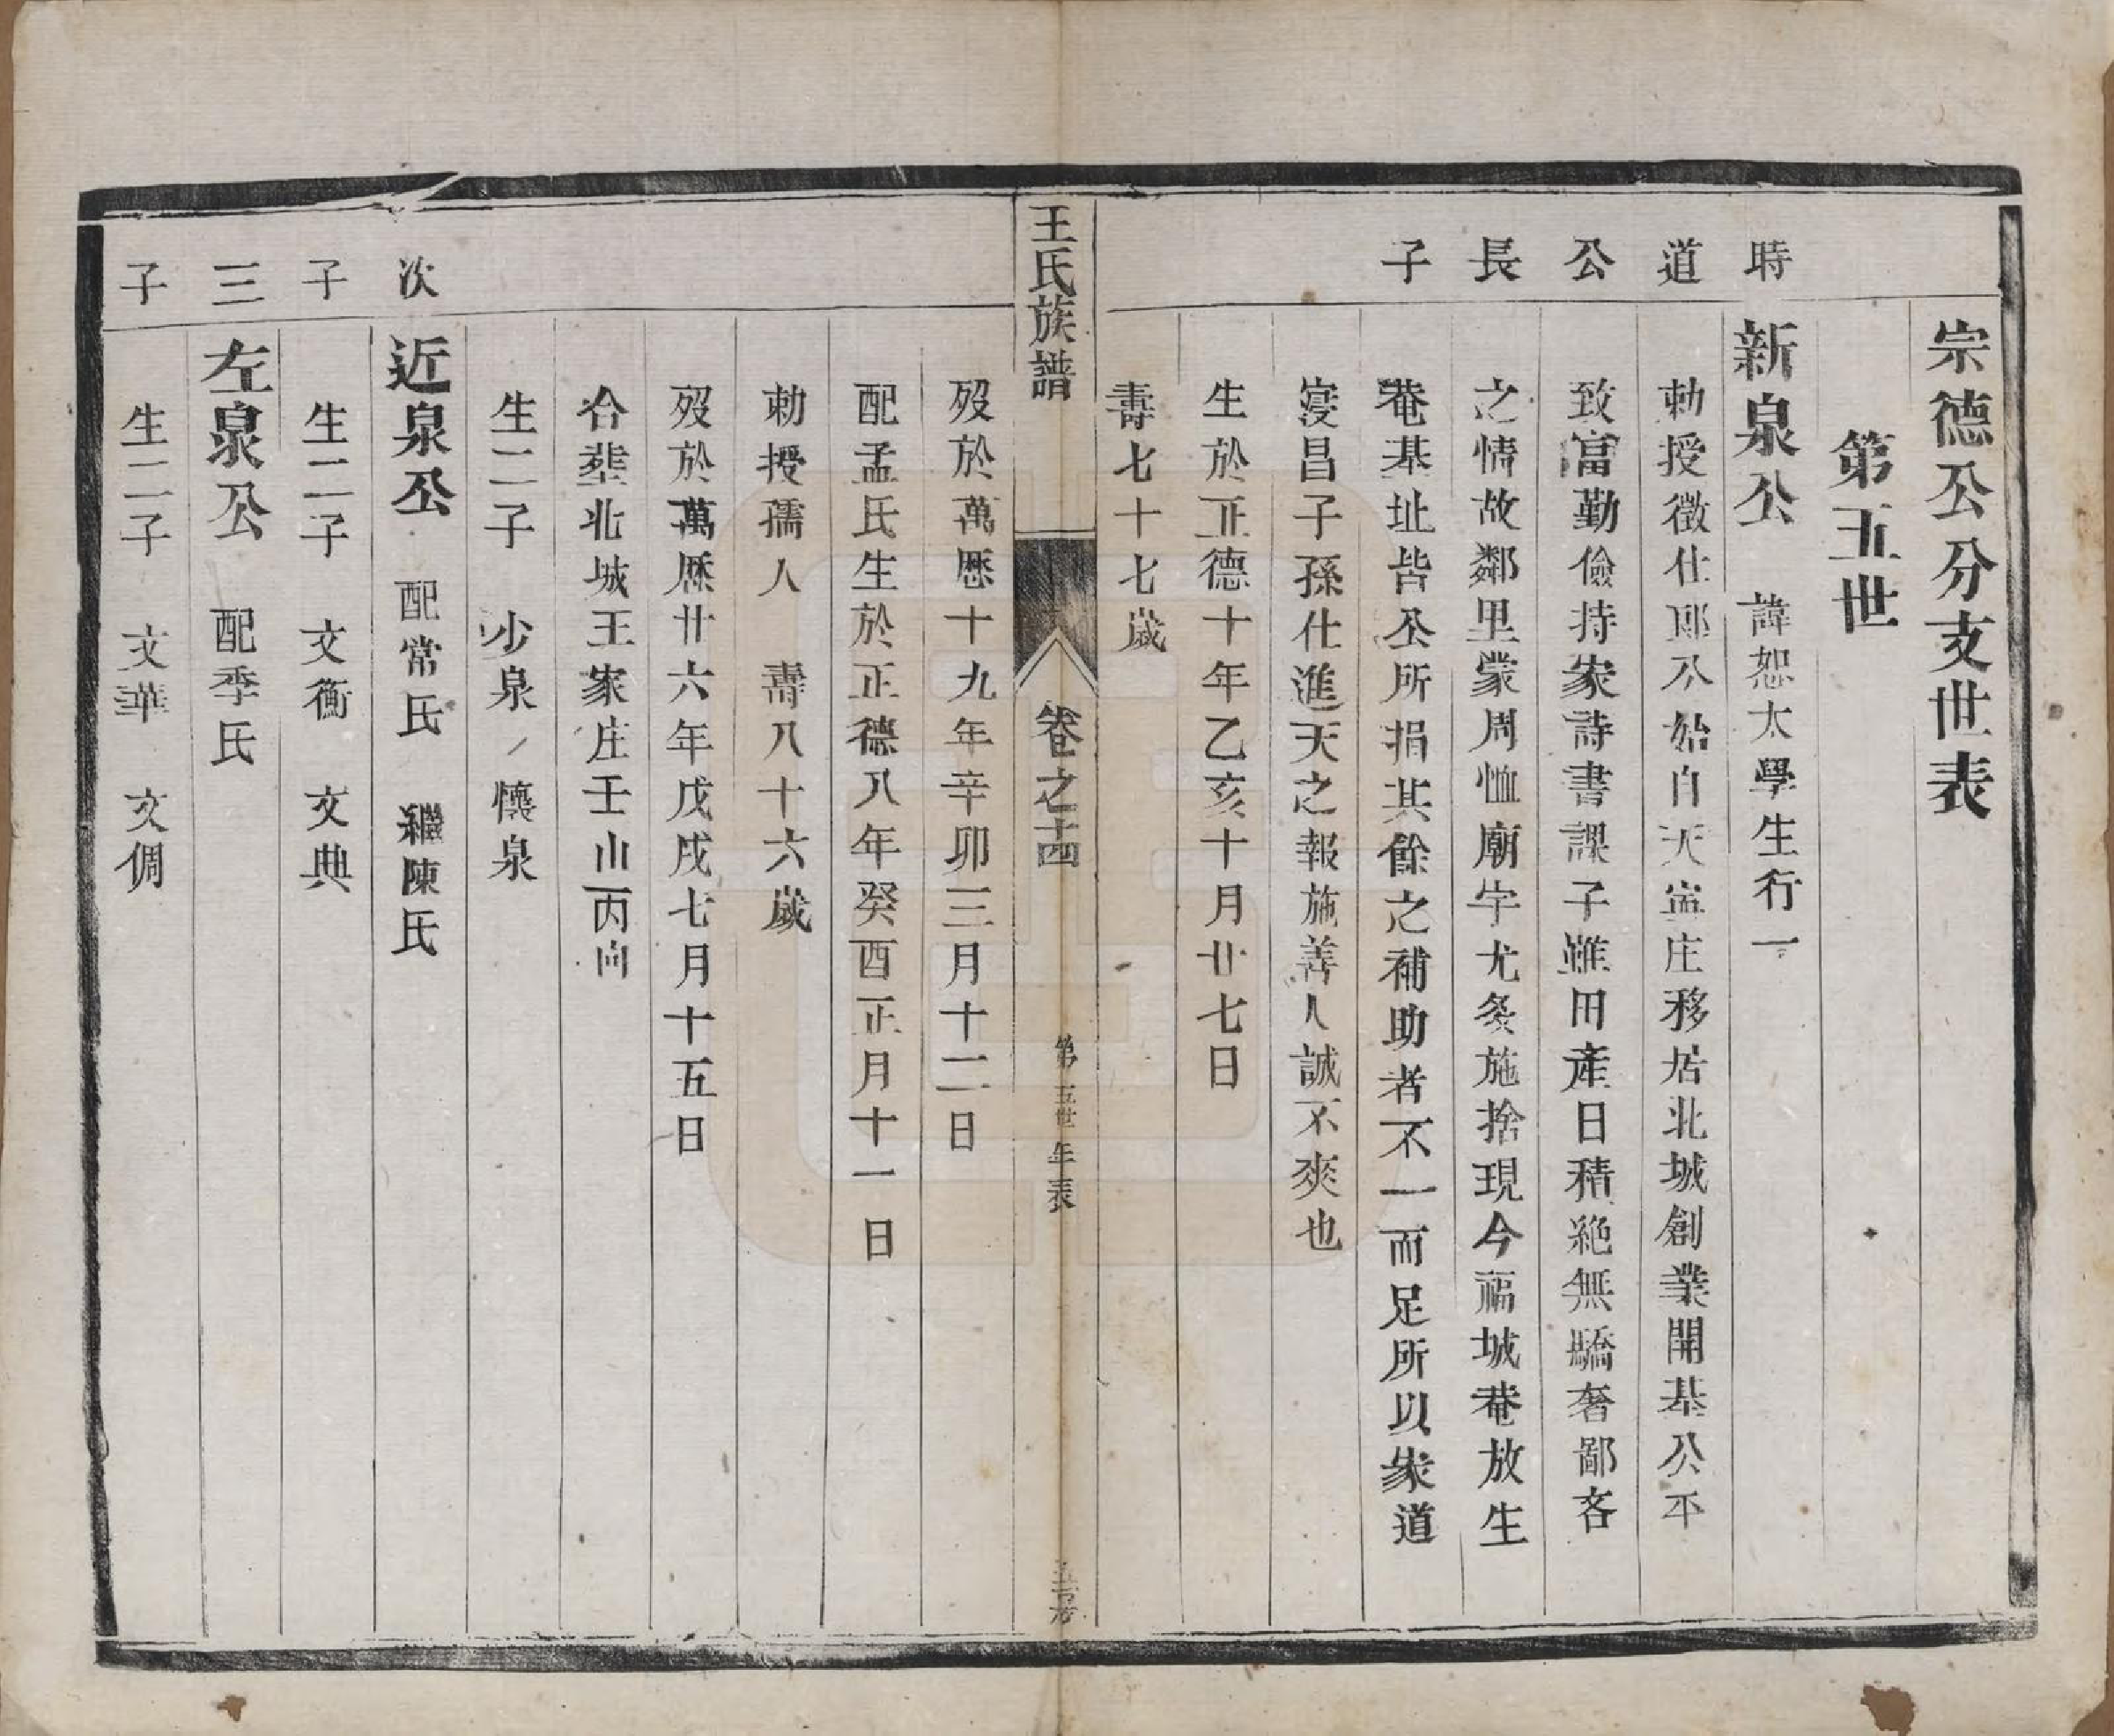 宗德公分支世表
第五世
時 新泉公 諱恕太學生行一
道 勅授徵仕郎公始自天寍庄移居北城創業開基公平
公 致富勤儉持家詩書課子雖田產日積絶無驕奢鄙吝
長 之情故鄰里蒙周恤廟宇尤多施捨現今福城菴放生
子 菴基址皆公所捐其餘之補助者不一而足所以家道
寖昌子孫仕進天之報施善人誠不爽也
生於正德十年乙亥十月廿七日
壽七十七歲
王氏族譜 卷之十四 第五世年表
歿於萬歷十九年辛卯三月十二日
配孟氏生於正德八年癸酉正月十一日
勅授孺人 壽八十六歲
歿於萬歷廿六年戊戌七月十五日
合塟北城王家庄壬山丙向
生二子 少泉 懷泉
次 近泉公 配常氏 繼陳氏
子 生二子 文衡 文典
三 左泉公 配季氏
子 生二子 文華 文倜